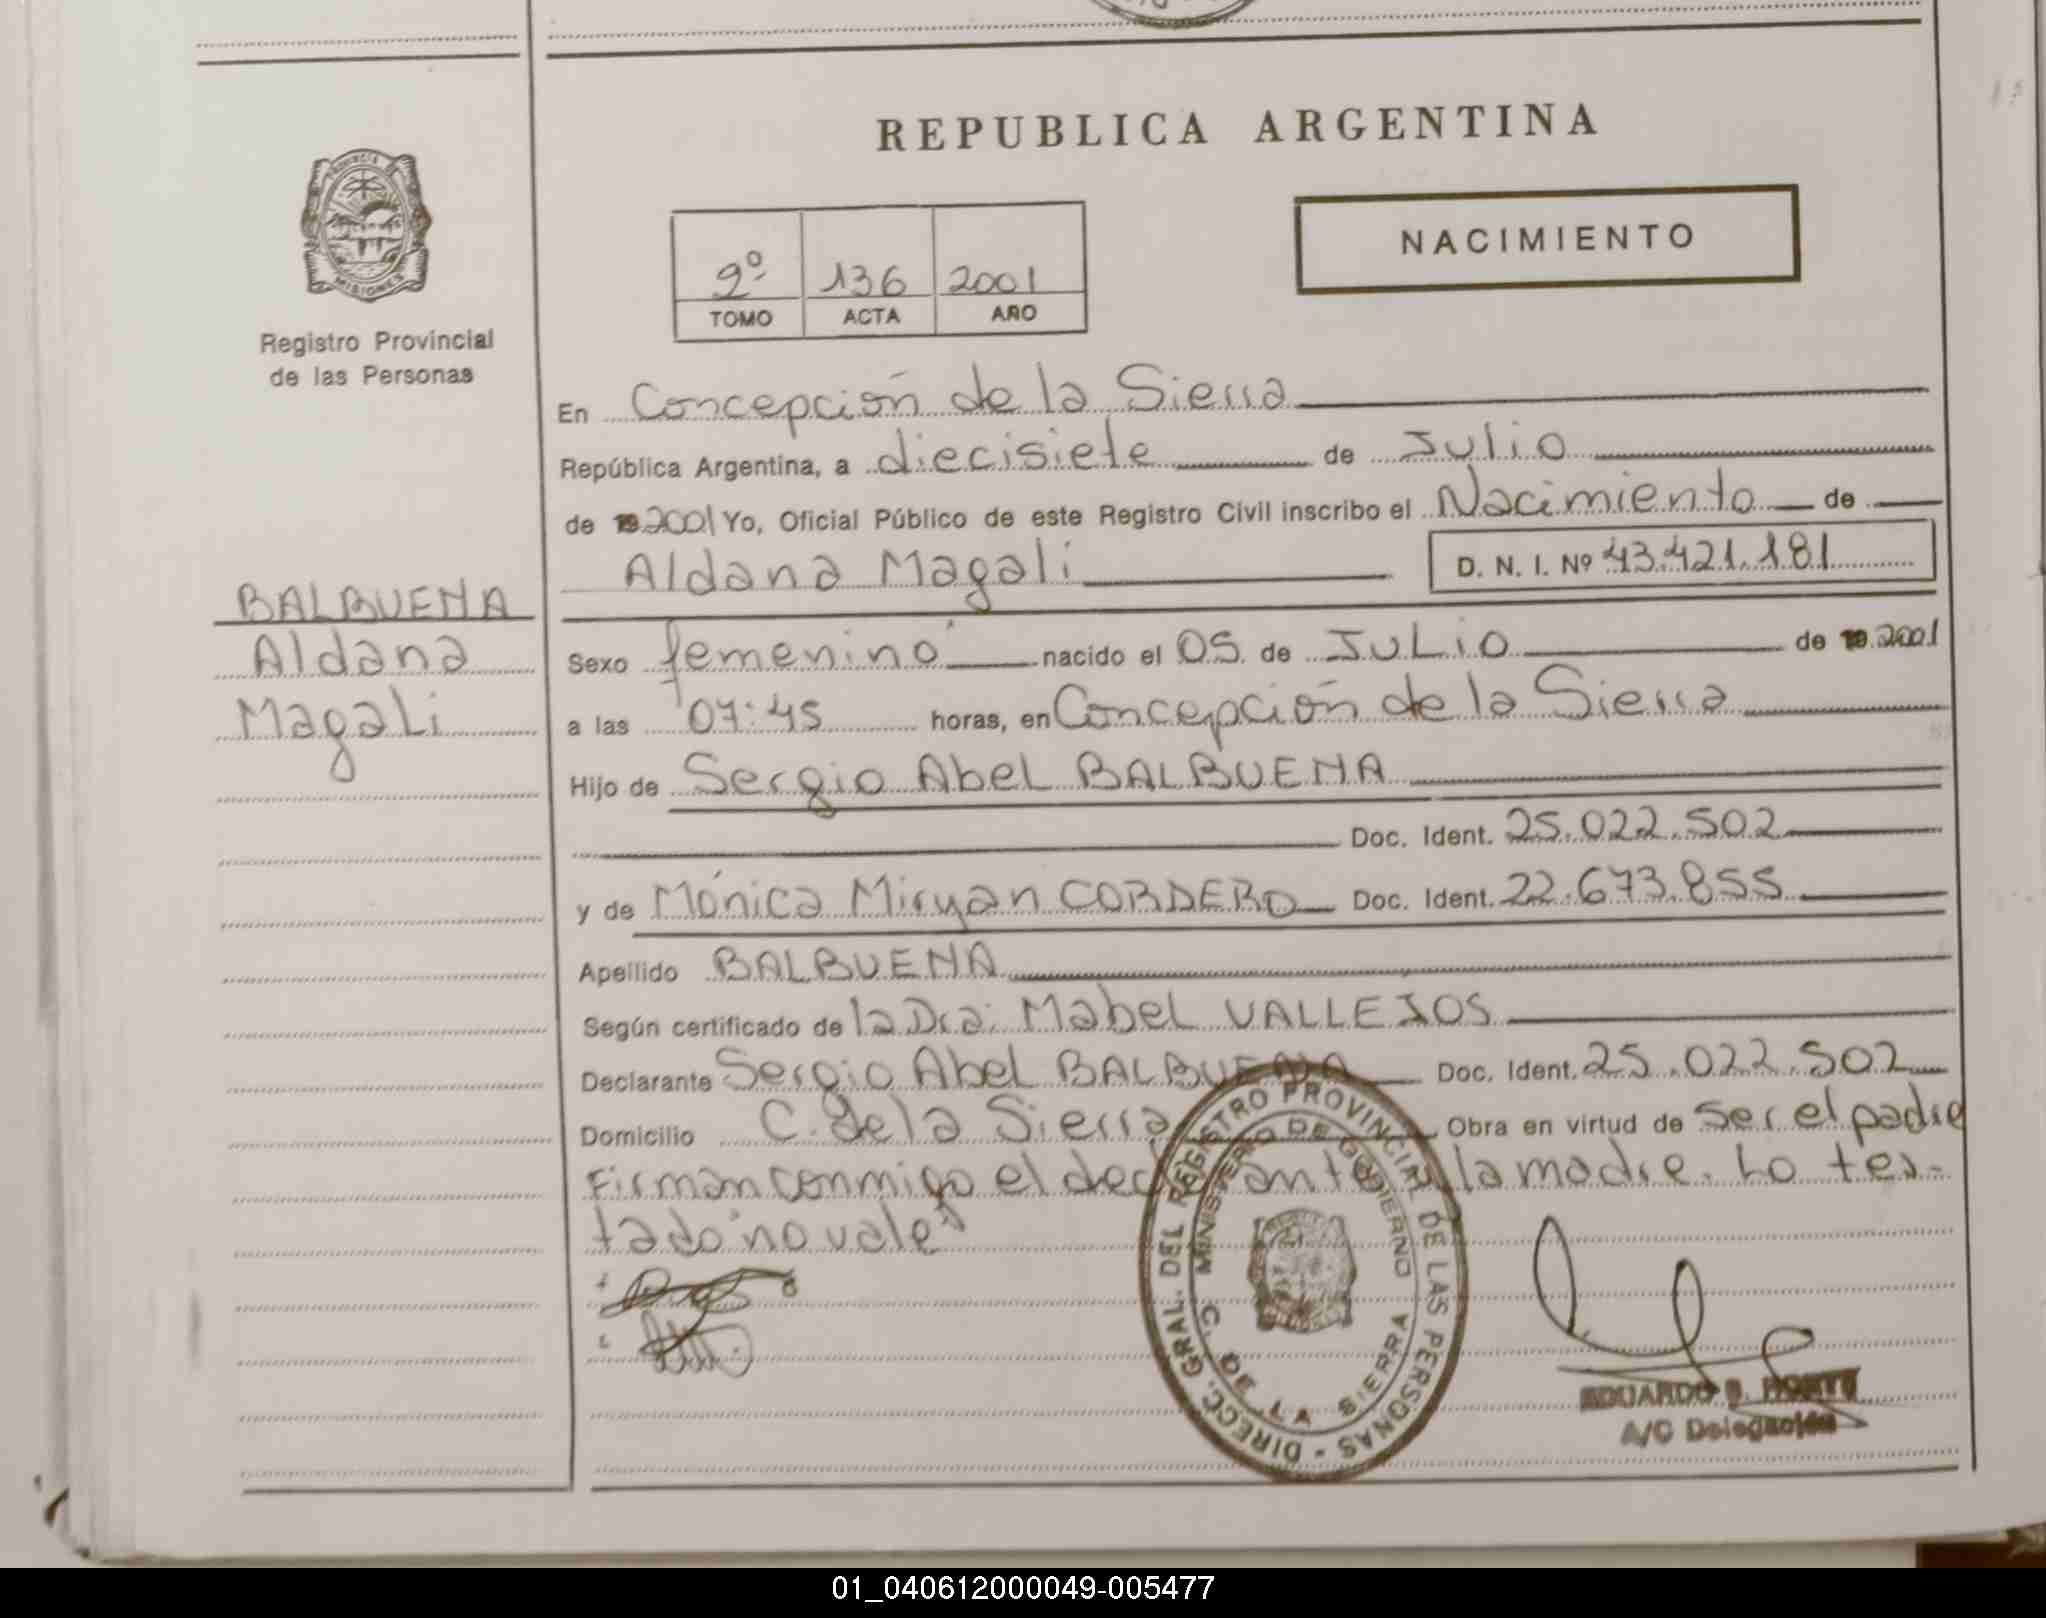 REPUBLICA ARGENTINA
PROVINCIA
MISIONES
Registro Provincial
de las Personas
NACIMIENTO
2º 136 2001
TOMO ACTA AÑO
En Concepción de la Sierra
República Argentina, a diecisiete de Julio
de 19 2001 Yo, Oficial Público de este Registro Civil inscribo el Nacimiento de
Aldana Magali D. N. I. Nº 43.421.181
BALBUENA
Aldana
Magali
Sexo femenino nacido el 05 de JULIO de 19 2001
a las 07:45 horas, en Concepción de la Sierra
Hijo de Sergio Abel BALBUENA
Doc. Ident. 25.022.502
y de Mónica Miryan CORDERO Doc. Ident. 22.673.855
Apellido BALBUENA
Según certificado de la Dra: Mabel VALLEJOS
Declarante Sergio Abel BALBUENA Doc. Ident. 25.022.502
Domicilio C. de la Sierra Obra en virtud de ser el padre
Firman conmigo el declarante y la madre. Lo tes-
tado "no vale"
DIRECC. GRAL. DEL REGISTRO PROVINCIAL DE LAS PERSONAS -
MINISTERIO DE GOBIERNO
C. DE LA SIERRA
EDUARDO
A/C Delegación
01_040612000049-005477